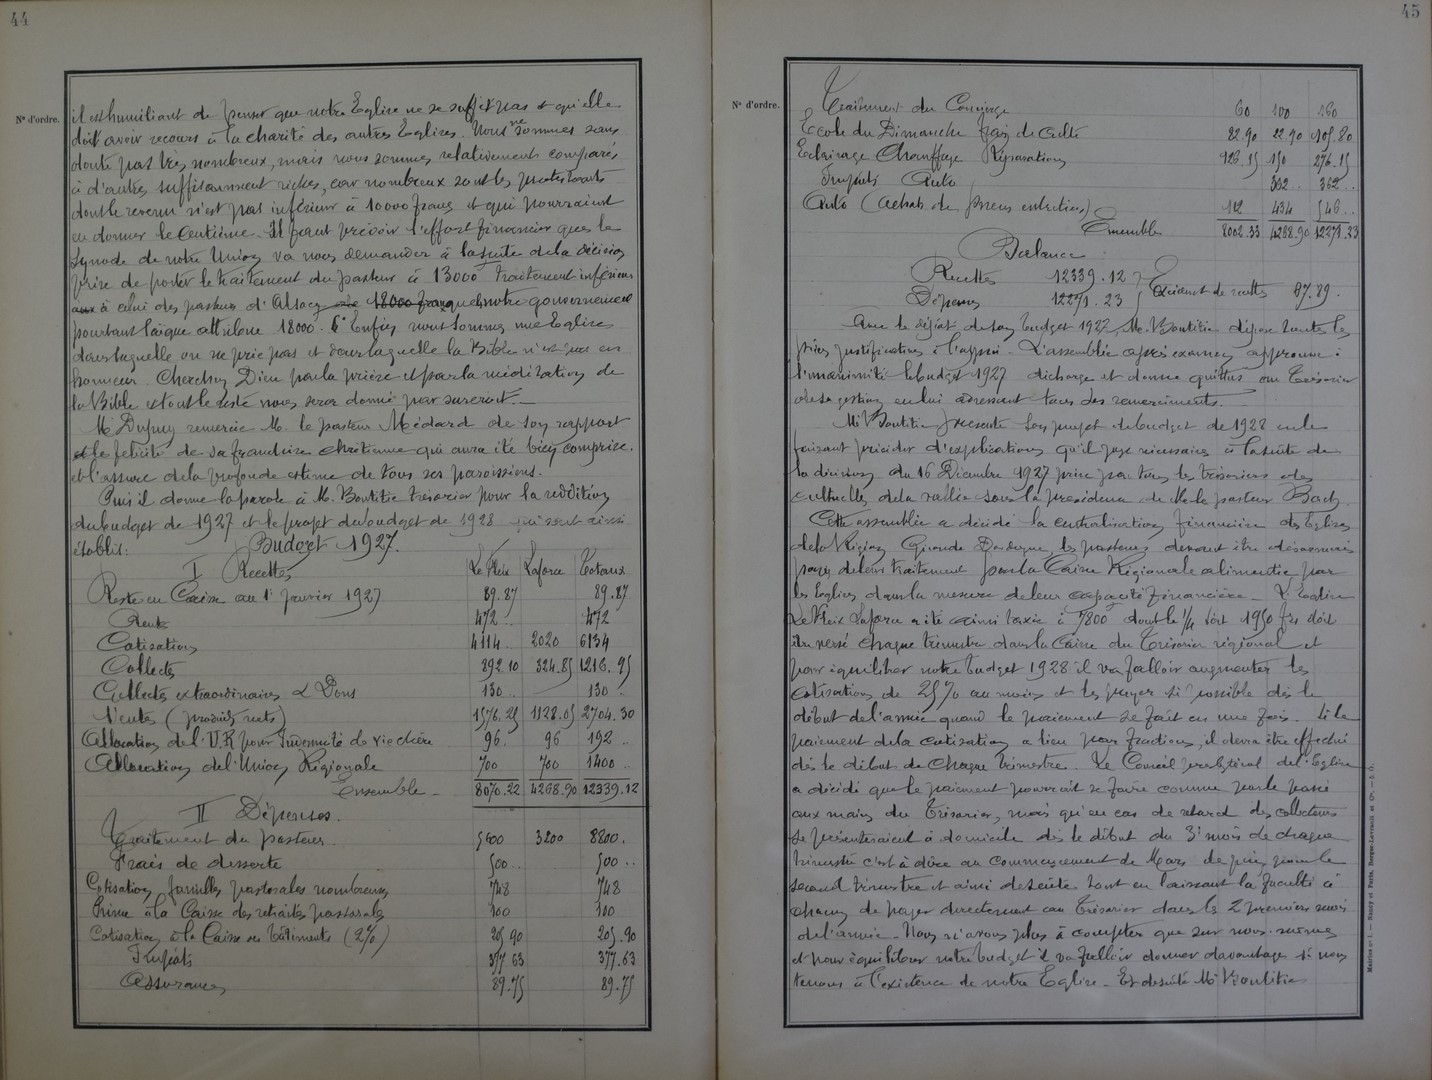 44
N° d'ordre.
il est humiliant de penser que notre Eglise ne se suffit pas et qu'elle
doit avoir recours à la charité des autres Eglises. Nous ne sommes sans
doute pas très nombreux, mais nous sommes relativement comparés
à d'autres suffisamment riches, car nombreux sont les protestants
dont le revenu n'est pas inférieur à 10000 francs et qui pourraient
en donner le centième. Il faut prévoir l'effort financier que le
Synode de notre Union va nous demander à la suite de la décision
prise de porter le traitement du pasteur à 13000 traitement inférieur
à celui des pasteurs d'Alsace 18000 francs que notre gouvernement
pourtant laïque attribue 18000. Enfin nous sommes une Eglise
dans laquelle on ne prie pas et dans laquelle la Bible n'est pas en
honneur. Cherchez Dieu par la prière et par la méditation de
la Bible et tout le reste nous sera donné par surcroît.
M. Dupuy remercie M. le pasteur Médard de son rapport
et le félicite de sa franchise chrétienne qui aura été bien comprise
et l'assure de la profonde estime de tous ses paroissiens.
Puis il donne la parole à M. Boutitie trésorier pour la reddition
du budget de 1927 et le projet du budget de 1928 qui sont ainsi
établis: Budget 1927.
I Recettes Le Fleix Laforce Totaux
Reste en Caisse au 1er janvier 1927 89.87 89.87
Rente 472 .. 472
Cotisations 4114. 2020 6134
Collectes 892.10 324.85 1216.95
Collectes extraordinaires & Dons 130 .. 130 ..
Ventes (produits nets) 1576.25 1128.05 2704.30
Allocation de l'U.R pour Indemnité de vie chère 96. 96 192 ..
Allocation de l'Union Régionale 700 700 1400 ..
Ensemble 8070.22 4268.90 12339.12
II Dépenses.
Traitement du pasteur. 5600 3200 8800.
Frais de desserte 500 .. 500 ..
Cotisation familles pastorales nombreuses 748 748
Prime à la Caisse des retraites pastorales 100 100
Cotisation à la Caisse des bâtiments (2%) 205.90 205.90
Impôts 377.63 377.63
Assurances 89.75 89.75
45
N° d'ordre.
Traitement du Concierge 60 100 160
Ecole du Dimanche frais de culte 82.90 22.90 105.80
Eclairage Chauffage Réparations 126.15 150 276.15
Impôts Auto 362 .. 362 ..
Auto (achats de pneus entretien) 112 434 546 ..
Ensemble 8002.33 4268.90 12271.23
Balance
Recettes 12339.12
Dépenses 12271.23 Excédent de recettes 67.89.
Avec le dépôt de son budget 1927, M. Boutitie dépose toutes les
pièces justificatives à l'appui. L'assemblée après examen approuve à
l'unanimité le budget 1927 décharge et donne quittus au Trésorier
de sa gestion en lui adressant tous ses remerciements.
M. Boutitie présente son projet de budget de 1928 en le
faisant précéder d'explications qu'il juge nécessaires à la suite de
la décision du 16 Décembre 1927 prise par tous les trésoriers des
cultuelles de la vallée sous la présidence de M. le pasteur Bach.
Cette assemblée a décidé la centralisation financière des Eglises
de la Région Gironde Dordogne, les pasteurs devant être désormais
payés de leur traitement par la Caisse Régionale alimentée par
les Eglises dans la mesure de leur capacité financière. L'Eglise
Le Fleix Laforce a été ainsi taxée à 7800 dont le 1/4 soit 1950 frs doit
être versé chaque trimestre dans la Caisse du Trésorier régional et
pour équilibrer notre budget 1928 il va falloir augmenter les
cotisations de 25% au moins et les payer si possible dès le
début de l'année quand le paiement se fait en une fois. Si le
paiement de la cotisation a lieu par fractions, il devra être effectué
dès le début de chaque trimestre. Le Conseil presbytéral de l'Eglise
a décidé que le paiement pourrait se faire comme par le passé
aux mains du Trésorier, mais qu'en cas de retard des collecteurs
se présenteraient à domicile dès le début du 3e mois de chaque
trimestre c'est à dire au commencement de Mars de juin pour le
second trimestre et ainsi de suite tout en laissant la faculté à
chacun de payer directement au Trésorier dans les 2 premiers mois
de l'année. Nous n'avons plus à compter que sur nous-mêmes
et pour équilibrer notre budget il va falloir donner davantage si nous
tenons à l'existence de notre Eglise. Et de suite M. Boutitie
Mairies n° 1. — Nancy et Paris, Berger-Levrault et Cie.